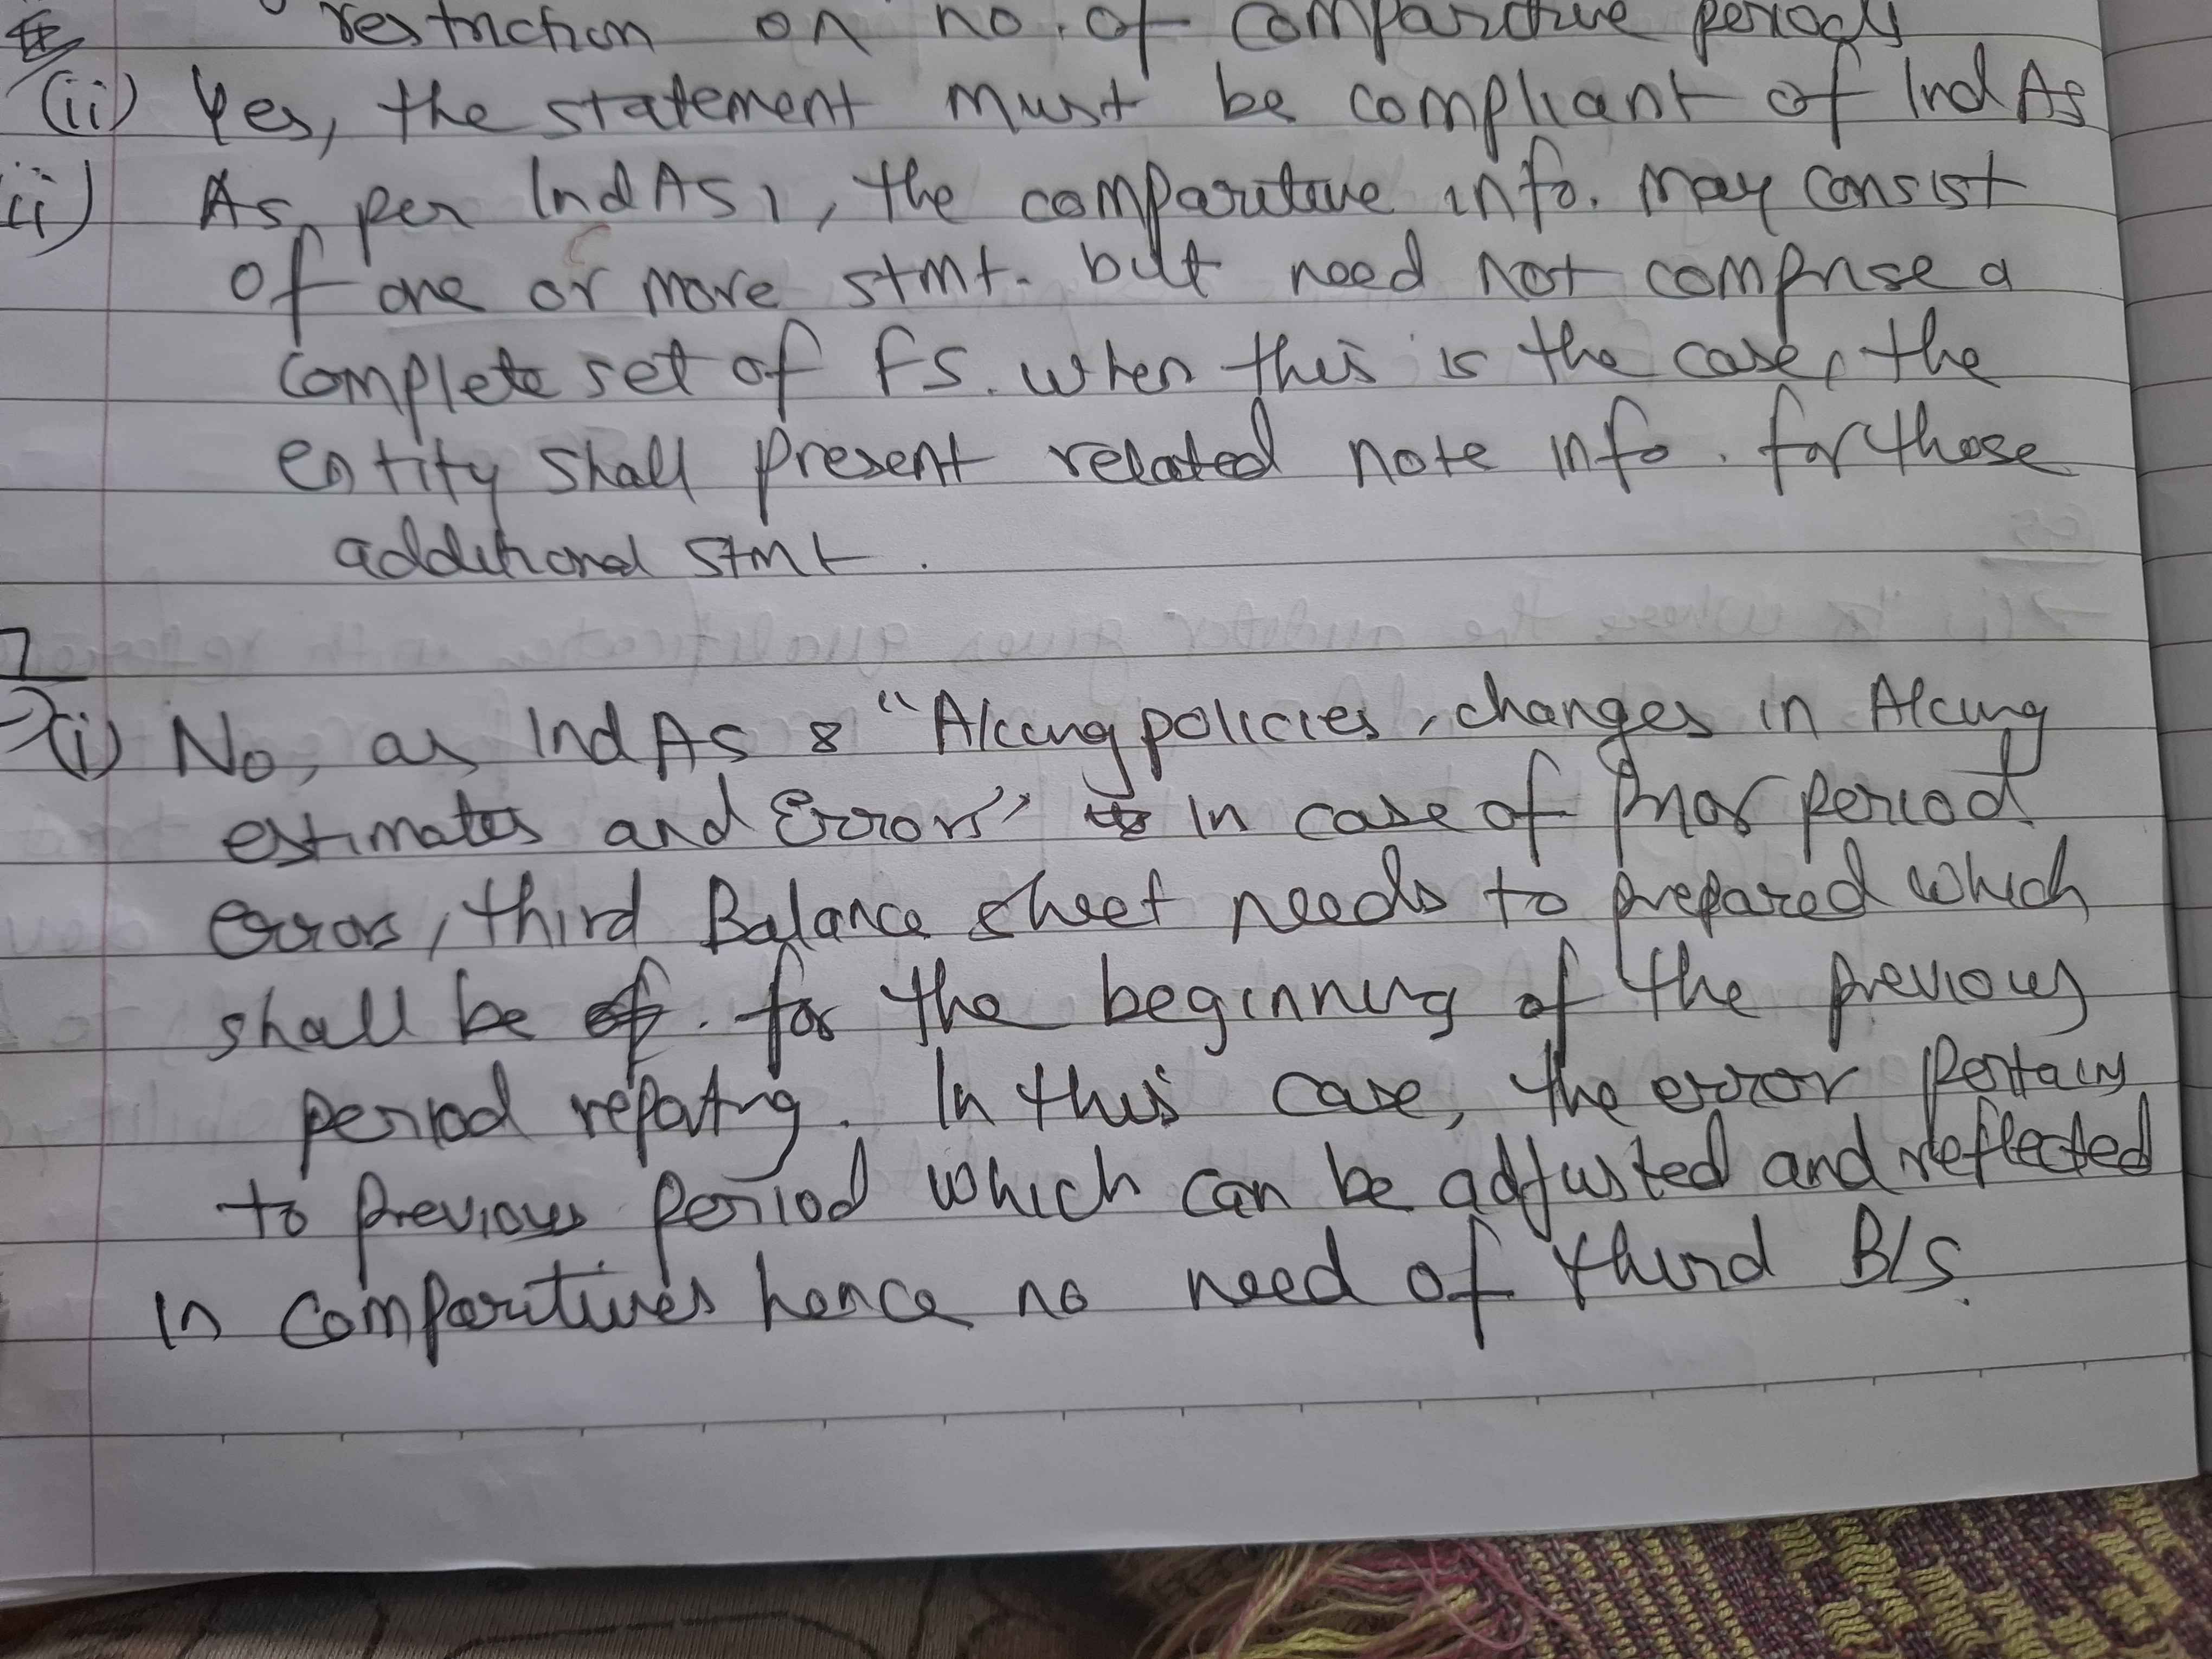 restriction on no. of comparative periods
(ii) Yes, the statement must be compliant of Ind AS
ii) As per Ind AS 1, the comparitive info. may consist
of one or more stmt. but need not comprise a
complete set of FS. when this is the case, the
entity shall present related note info. for those
additional stmt.
7
(i) No, as Ind AS 8 "Alcung policies, changes in Alcung
estimates and Errors" in case of Prior period
errors, third Balance sheet needs to prepared which
shall be for the beginning of the previous
period repoting. In this case, the error pertains
to previous period which can be adjusted and reflected
in comparitives hence no need of third B/S.